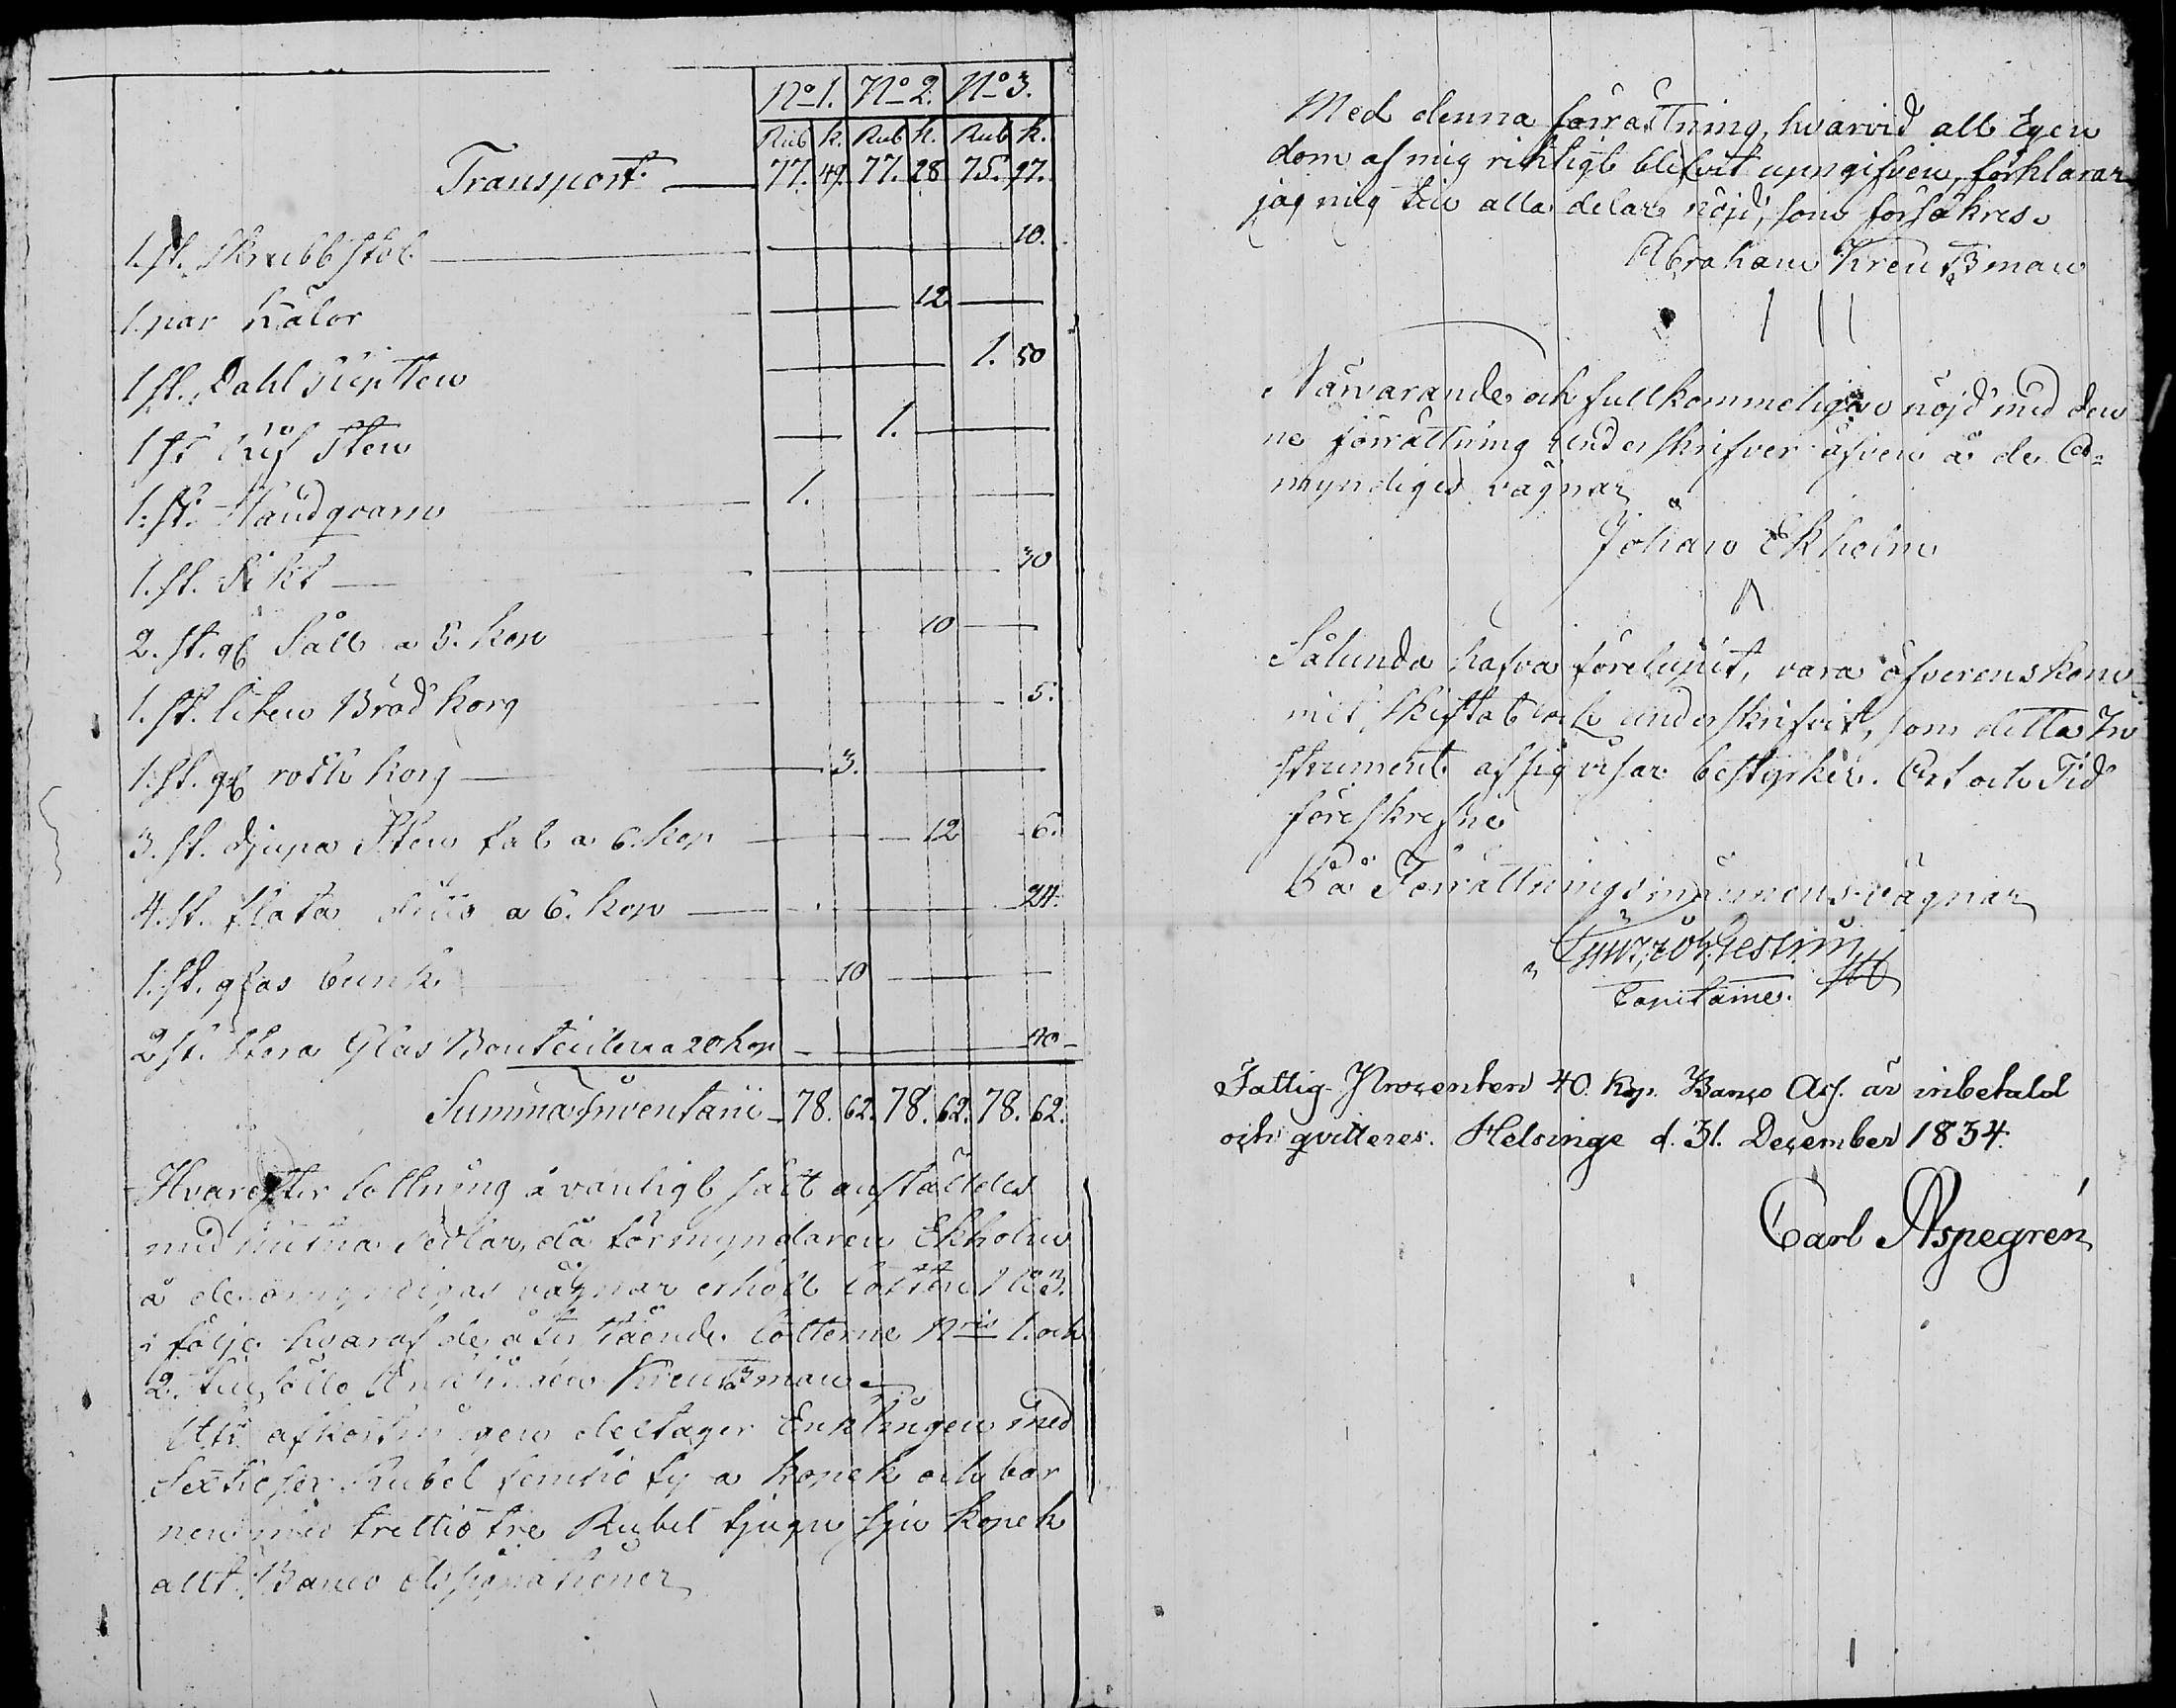 No 1. No 2. No 3.
Rub k. Rub k. Rub k.
Transport. 77. 49. 77. 28 75. 97.
1. st. Skrubbstol 10.
1. par Kälor 12
1 st. Dahl 1. 50
1 st Sten 1.
1. st. Handqvarn 1.
1. st. Sikt 30
2. st. gl Såll a 5. kop 10
1. st. liten Bröd korg 5.
1. st. gl korg 3.
3. st. djupa Sten fat a 6. kop 12 6.
4. st. flata ditto a 6. kop 24.
1. st. glas bunk 10
2 st. stora Glas Bouteiller a 20 kop 40
Summa Inventarii 78. 62. 78. 62. 78. 62.
Hvarefter lottning å vanligt sätt anställdes
med sedlar, då förmyndaren Ekholm
å de omyndigas vägnar erhöll lotten No 3.
i följe hvaraf de återstående lotterne Nris 1. och
2. tillföllo Enklingen Kreutzman
Uti afkortningen deltager Enklingen med
Sextiosex Rubel femtio fyra kopek och bar
nen med trettio tre Rubel tjugu sju kopek
allt Banco Assignationer
Med denna förrättning, hvarvid all Egen
dom af mig riktigt blifvit uppgifven, förklarar
jag mig till alla delar nöjd, som försäkres.
Abraham Kreutzman
Närvarande och fullkommeligen nöjd med den
na förrättning underskrifver äfven å de O=
myndiges vägnar
Johan Ekholm
Sålunda hafva förelupit, vara öfverenskom
mit, skiftat och underskrifvit, som detta In
strument af sig visar bestyrker. Ort och Tid
föreskrefne
På Förrättningsmännens vägnar
Capitaine.
Fattig Procenten 40. Kop. Banco Ass. är inbetald
och qvitteres. Helsinge d. 31. December 1834.
Carl Aspegrén